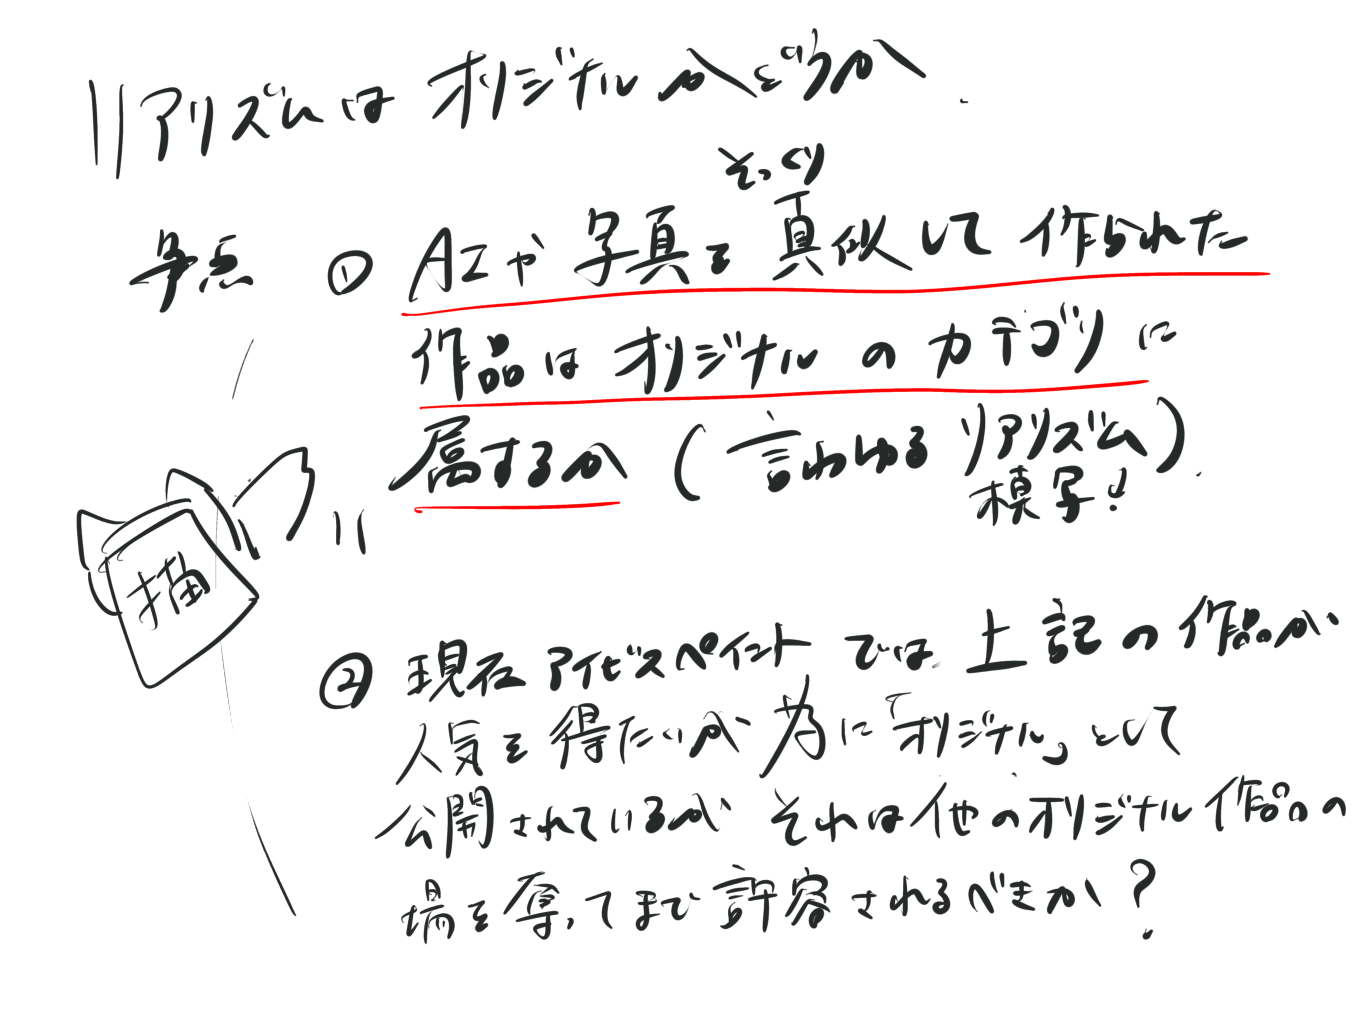 リアリズムは オリジナルかどうか.
争点 ① AIや写真をそっくり真似して作られた
作品はオリジナルのカテゴリに
属するか(言わゆるリアリズム模写!).
② 現在アイビスペイントでは上記の作品が
人気を得たいが為に「オリジナル」として
公開されているがそれは他のオリジナル作品の
場を奪ってまで許容されるべきか?
描